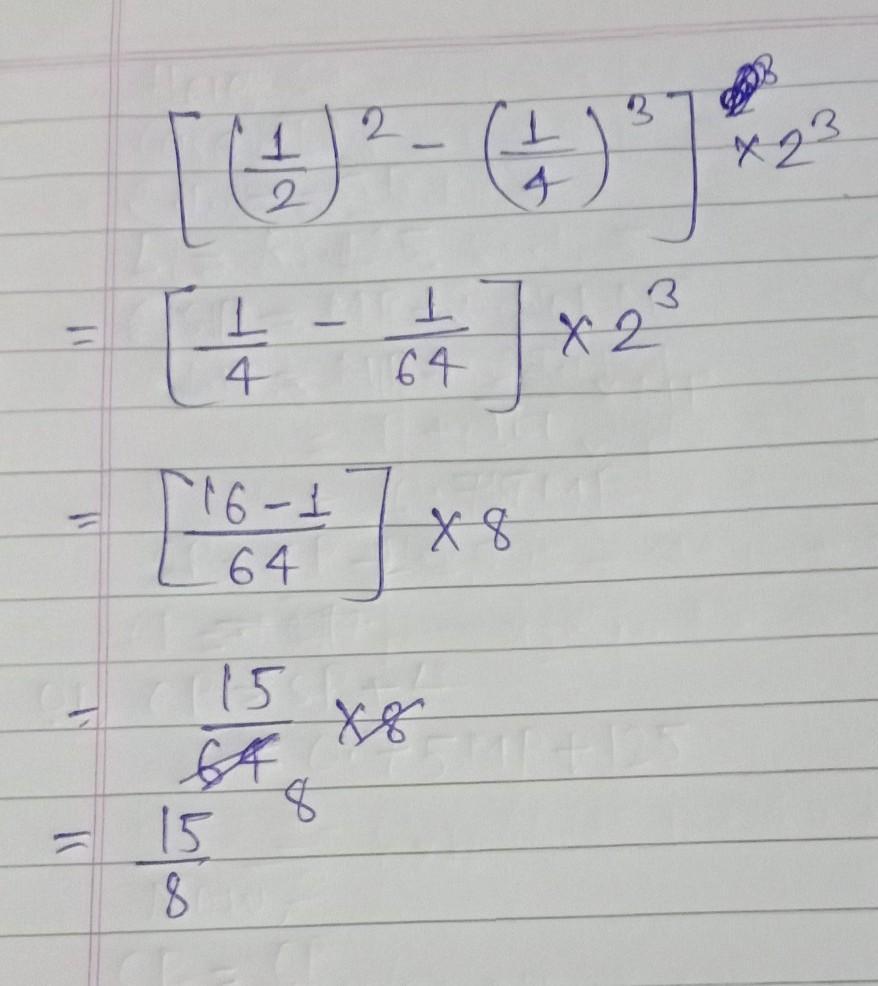 [(1/2)² - (1/4)³] × 2³
= [1/4 - 1/64] × 2³
= [16-1/64] × 8
= 15/64 × 8
8
= 15/8